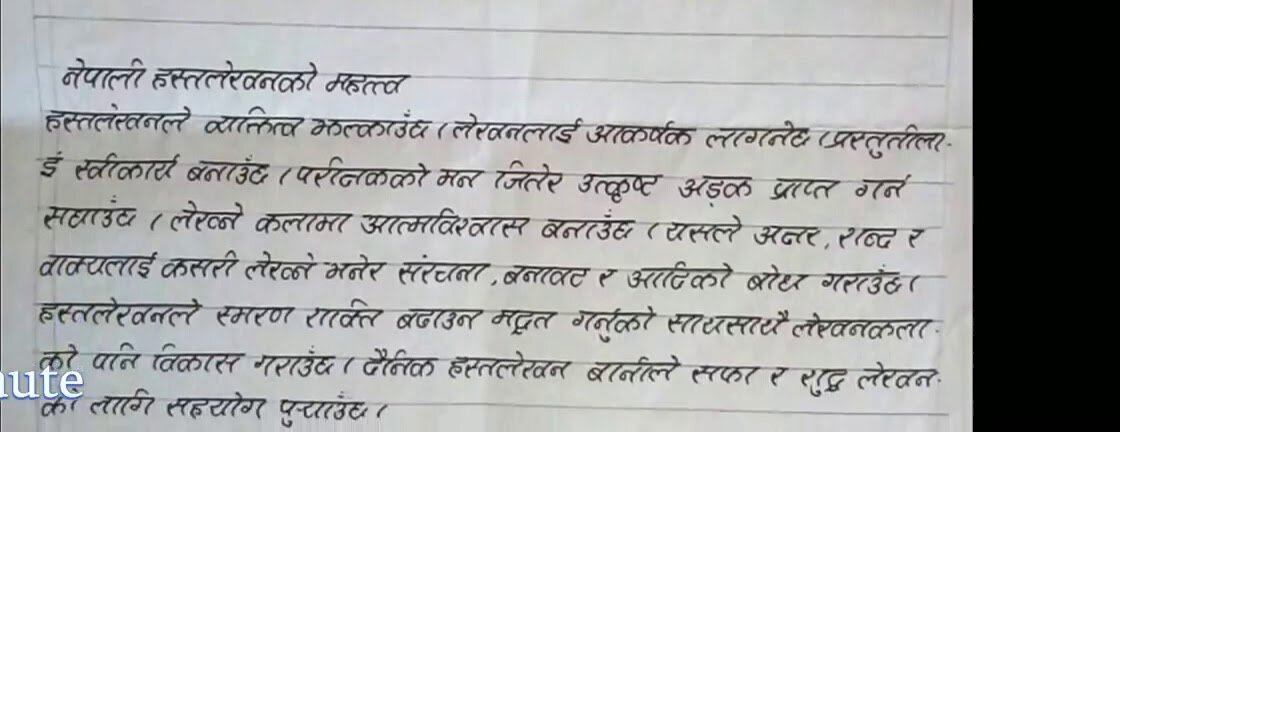 नेपाली हस्तलेखनको महत्त्व
हस्तलेखनले व्यक्तित्व झल्काउँछ । लेखनलाई आकर्षक लागनेछ । प्रस्तुतीला-
ई स्वीकार्य बनाउँछ । परीक्षकको मन जितेर उत्कृष्ट अङ्क प्राप्त गर्न
सघाउँछ । लेख्ने कलामा आत्मविश्वास बनाउँछ । यसले अक्षर, शब्द र
वाक्यलाई कसरी लेख्ने भनेर संरचना, बनावट र आदिको बोध गराउँछ ।
हस्तलेखनले स्मरण शक्ति बढाउन मद्दत गर्नुको साथसाथै लेखनकला-
को पनि विकास गराउँछ । दैनिक हस्तलेखन बानीले सफा र शुद्ध लेखन-
का लागि सहयोग पुऱ्याउँछ ।
nute